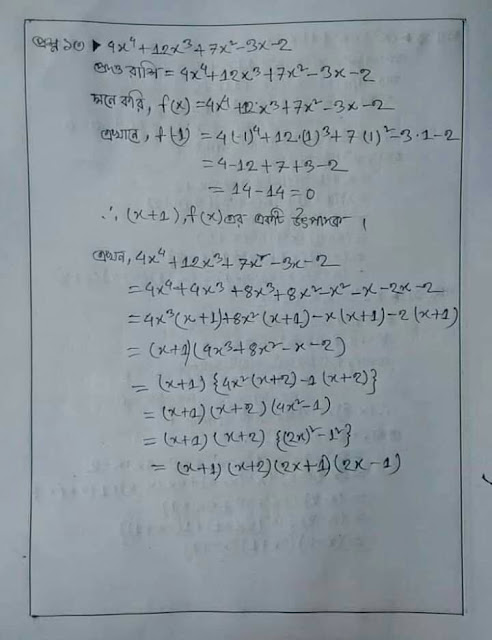 প্রশ্ন ১৩ ▶ 4x⁴+12x³+7x²-3x-2
প্রদত্ত রাশি = 4x⁴+12x³+7x²-3x-2
মনে করি, f(x) = 4x⁴+12x³+7x²-3x-2
এখানে, f(-1) = 4(-1)⁴+12·(1)³+7(1)²-3·1-2
= 4-12+7+3-2
= 14-14=0
∴ (x+1), f(x) এর একটি উৎপাদক ।
এখন, 4x⁴+12x³+7x²-3x-2
= 4x⁴+4x³+8x³+8x²-x²-x-2x-2
= 4x³(x+1)+8x²(x+1)-x(x+1)-2(x+1)
= (x+1)(4x³+8x²-x-2)
= (x+1) {4x²(x+2)-1(x+2)}
= (x+1)(x+2)(4x²-1)
= (x+1)(x+2) {(2x)²-1²}
= (x+1)(x+2)(2x+1)(2x-1)